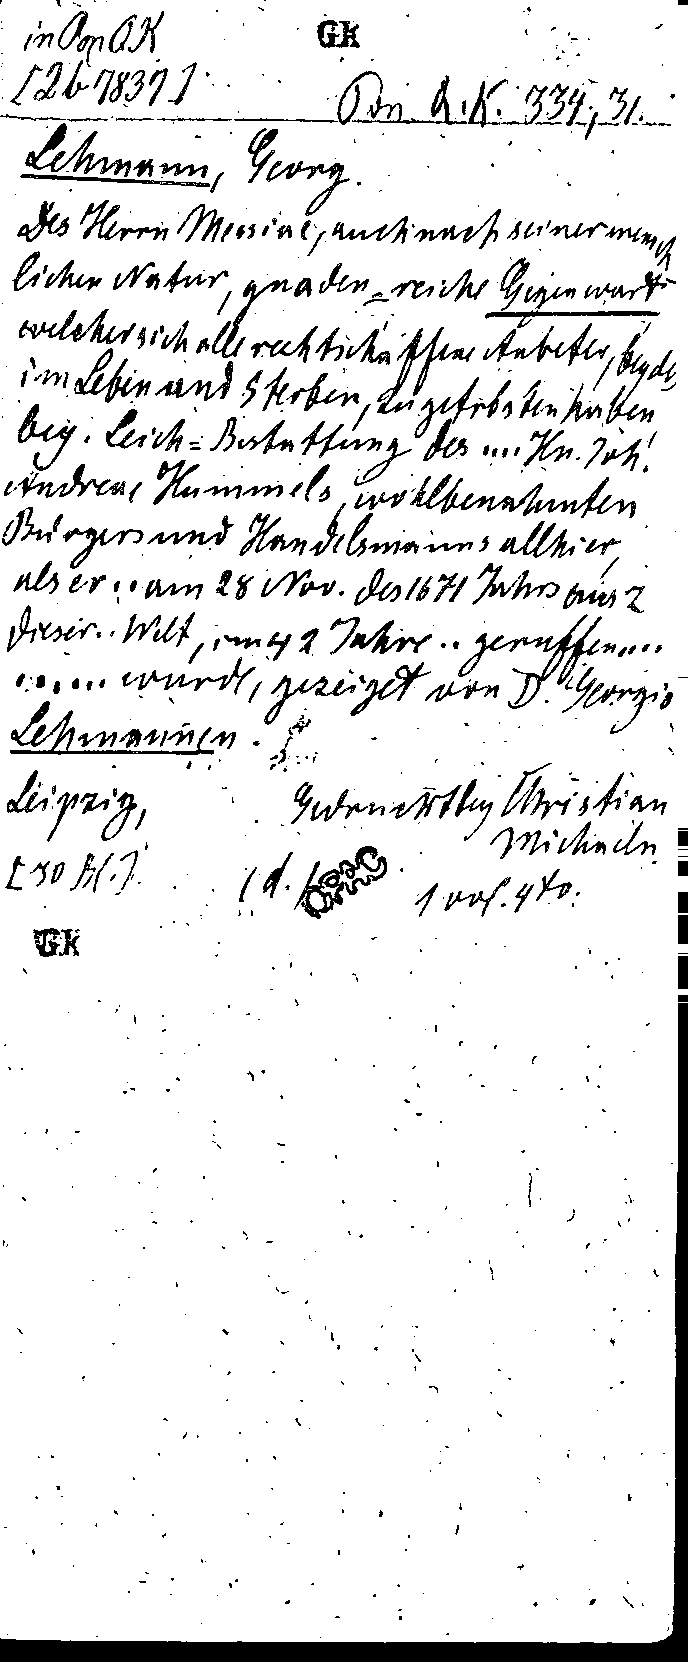 in Pon QK
GK
[2b 7837]
Pon Q.K. 334, 31.
Lehmann, Georg.
Des Herrn Messiae, auch nach seiner mensch
lichen Natur, gnaden=reiche Gegenwart
welcher sich alle rechtschaffene Anbeter, beyde,
im Leben und Sterben, zu getrösten haben
bey. Leich=Bestattung des ... Hn. Joh.
Andreae Hummels, wohlbenahmten
Bürgers und Handelsmanns allhier,
als er .. am 28 Nov. des 1671 Jahrs aus
dieser .. Welt, im 42 Jahre .. geruffen ...
..... wurde, gezeiget von D. Georgio
Lehmannen.
Leipzig, Gedruckt bey Christian
Michaeln
[30 Bl.] 1 vol. 4to.
GK